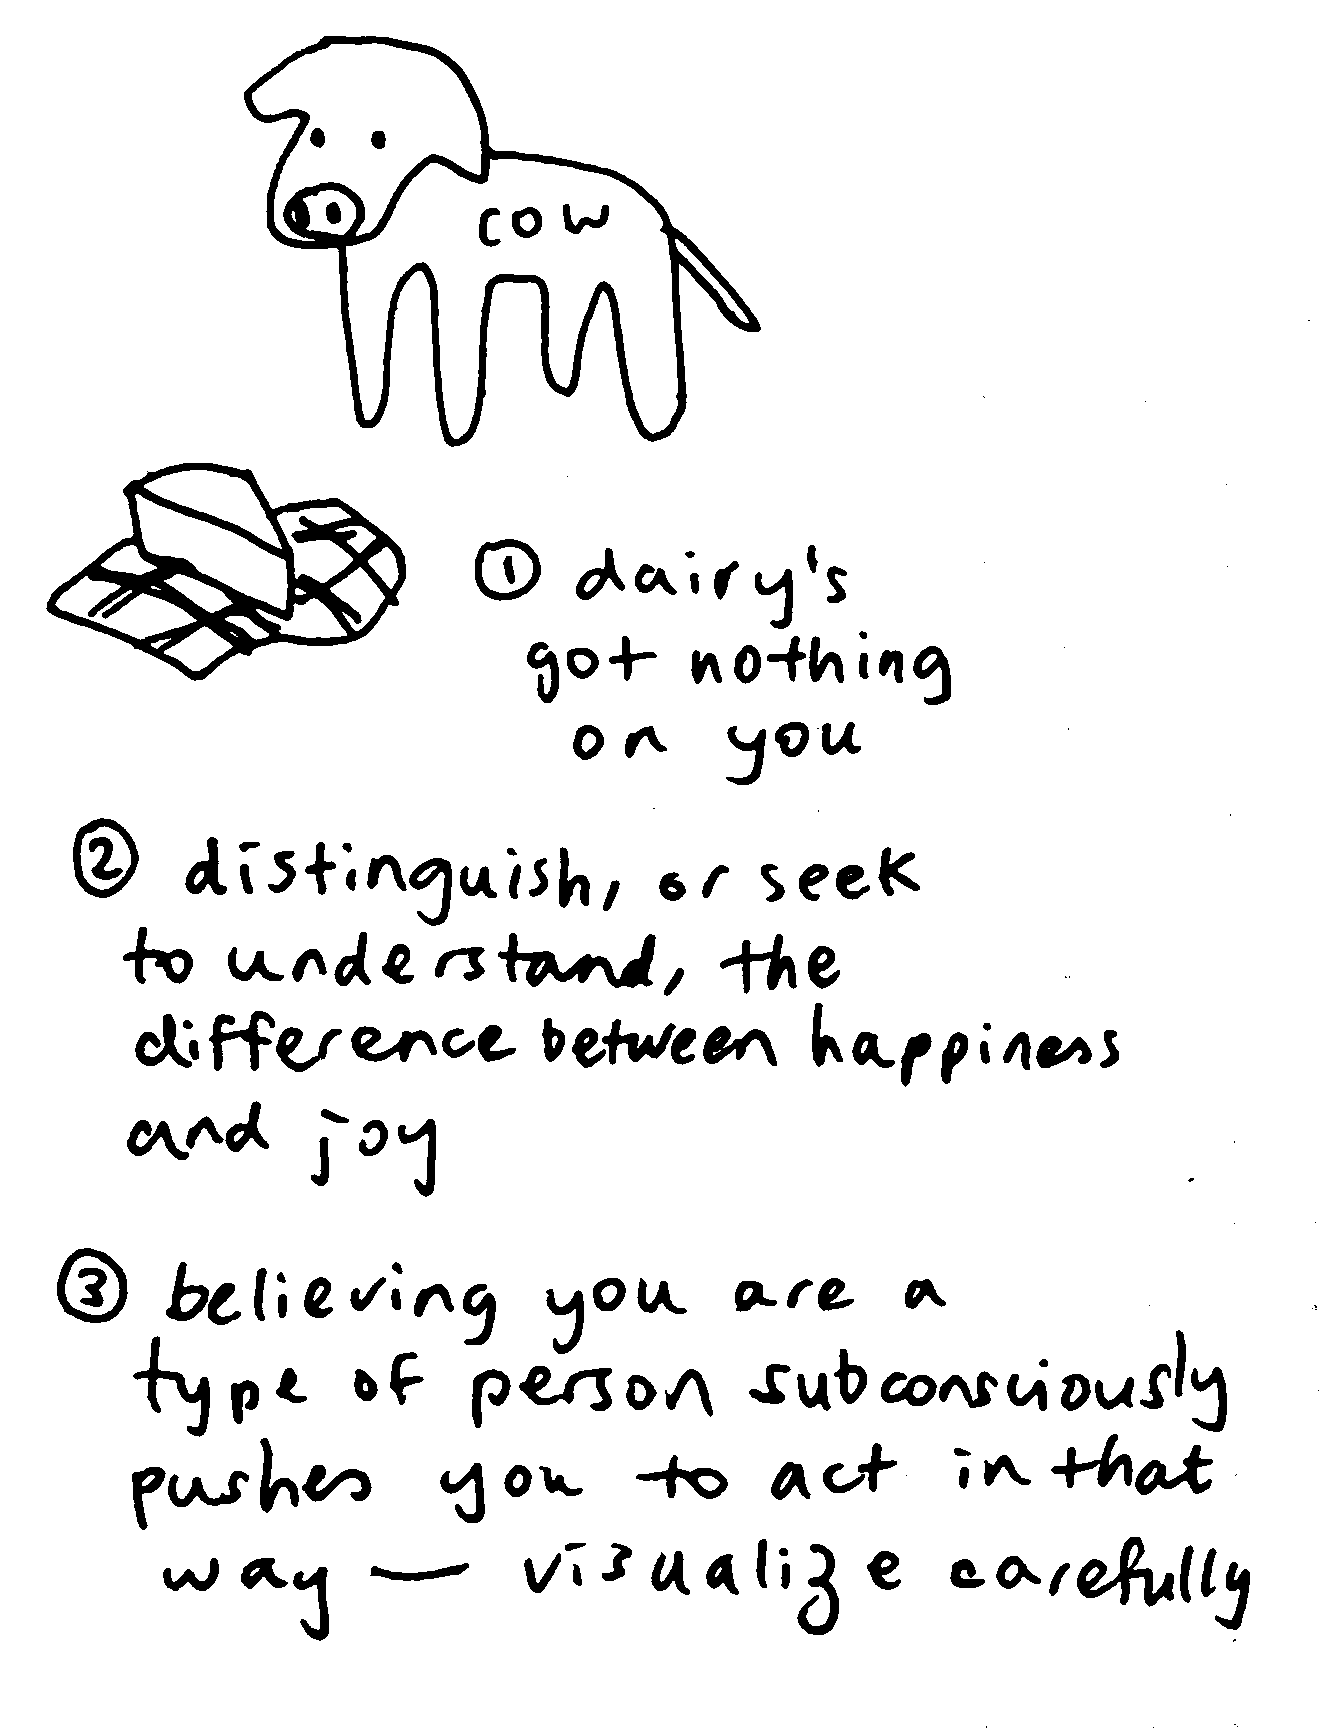 cow
① dairy's
got nothing
on you
② distinguish, or seek
to understand, the
difference between happiness
and joy
③ believing you are a
type of person subconsciously
pushes you to act in that
way — visualize carefully